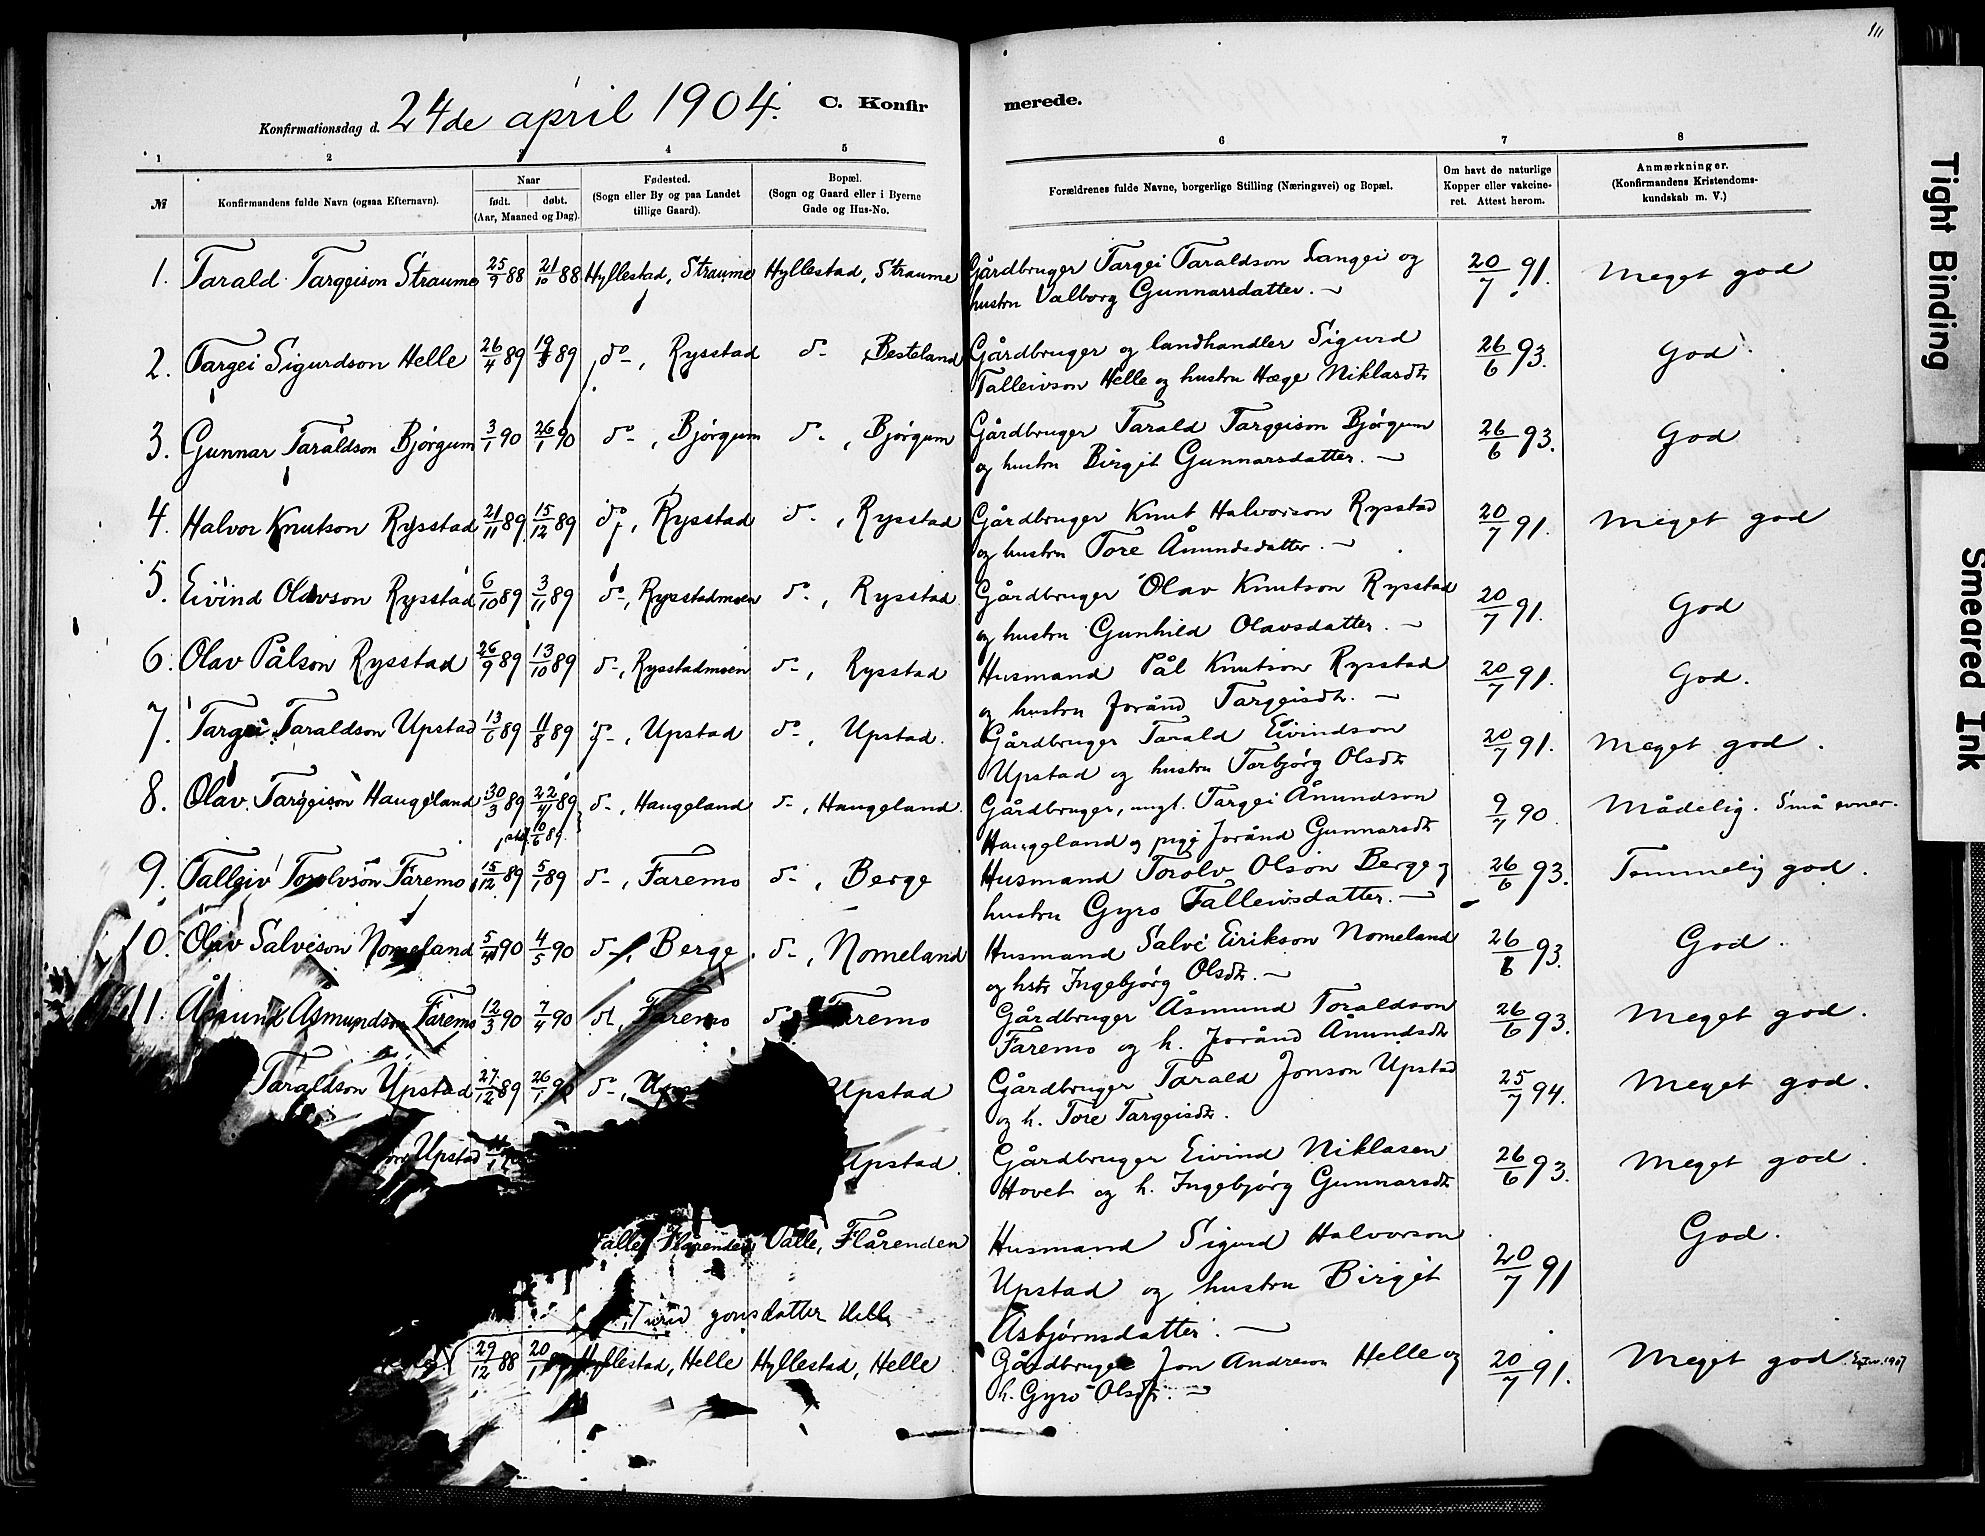 111
Konfirmationsdag d. 24de april 1904. C. Konfirmerede.
1 2 3 4 5 6 7 8
№ Konfirmandens fulde Navn (ogsaa Efternavn). Naar født. døbt. (Aar, Maaned og Dag). Fødested. (Sogn eller By og paa Landet tillige Gaard). Bopæl. (Sogn og Gaard eller i Byerne Gade og Hus-No. Forældrenes fulde Navne, borgerlige Stilling (Næringsvei) og Bopæl. Om havt de naturlige Kopper eller vakcineret. Attest herom. Anmærkninger. (Konfirmandens Kristendomskundskab m. V.)
1. Tarald Targeison Straume 25/9 88 21/10 88 Hyllestad, Straume Hyllestad, Straume Gårdbruger Targei Taraldson Langei og 20/7 91. Meget god
hustru Valborg Gunnarsdatter. —
2. Targei Sigurdson Helle 26/4 89 19/5 89 do-, Rysstad do- , Besteland Gårdbruger og landhandler Sigurd 26/6 93. God.
Talleivson Helle og hustru Hæge Niklasdtr
3. Gunnar Taraldson Bjørgum 3/1 90 26/1 90 do-, Bjørgum do-, Bjørgum Gårdbruger Tarald Targeison Bjørgum 26/6 93. God
og hustru Birgit Gunnarsdatter. —
4. Halvor Knutson Rysstad 21/11 89 15/12 89 do, Rysstad do-, Rysstad Gårdbruger Knut Halvorson Rysstad 20/7 91. Meget god
og hustru Tore Åmundsdatter. —
5. Eivind Olavson Rysstad 6/10 89 3/11 89 do-, Rysstadmoen do-, Rysstad Gårdbruger Olav Knutson Rysstad 20/7 91. God
og hustru Gunhild Olavsdatter. —
6. Olav Pålson Rysstad 26/9 89 13/10 89 do-, Rysstadmoen do-, Rysstad Husmand Pål Knutson Rysstad 20/7 91. God.
og hustru Joránd Targeisdtr. —
7. Targei Taraldson Upstad 13/6 89 11/8 89 do-, Upstad do-, Upstad. Gårdbruger Tarald Eivindson 20/7 91. Meget god.
Upstad og hustru Torbjørg Olsdtr
8. Olav Targeison Haugeland 30/3 89 22/4 89 do-, Haugeland do-, Haugeland. Gårdbruger, ungk. Targei Ånundson 9/7 90. Mådelig. Små evner.
10/6 89. Haugeland og pige Joránd Gunnarsdtr
9. Talleiv Torolvson Faremo 15/12 89 5/1 89 do-, Faremo do-, Berge Husmand Torolv Olson Berge og 26/6 93. Temmelig god.
hustru Gyro Talleivsdatter. —
10. Olav Salveson Nomeland 5/4 90 4/5 90 do-, Berge. do-, Nomeland Husmand Salve Eirikson Nomeland 26/6 93. God.
og hstr Ingebjørg Olsdtr. —
11. Åsmundson Faremo 12/3 90 7/4 90 do, Faremo do Faremo Gårdbruger Åsmund Toraldson 26/6 93. Meget god.
Faremo og h. Joránd Åmundsdtr
Taraldson Upstad 27/12 89 26/1 90 do-, Ups Upstad Gårdbruger Tarald Jonson Upstad 25/7 94. Meget god.
og h. Tore Targeisdtr.
Upstad Upstad. Gårdbruger Eivind Niklasen 26/6 93. Meget god.
Hovet og h. Ingebjørg Gunnarsdtr
Valle, Flårenden Valle, Flårenden Husmand Sigurd Halvorson 20/7 91 God.
Upstad og hustru Birgit
Asbjørnsdatter. —
Turid Jonsdatter Helle
29/12 88 20/1 Hyllestad, Helle Hyllestad, Helle Gårdbruger Jon Andreson Helle og 20/7 91. Meget god.
h. Gyro Olsdtr. —
Tight Binding
Smeared Ink